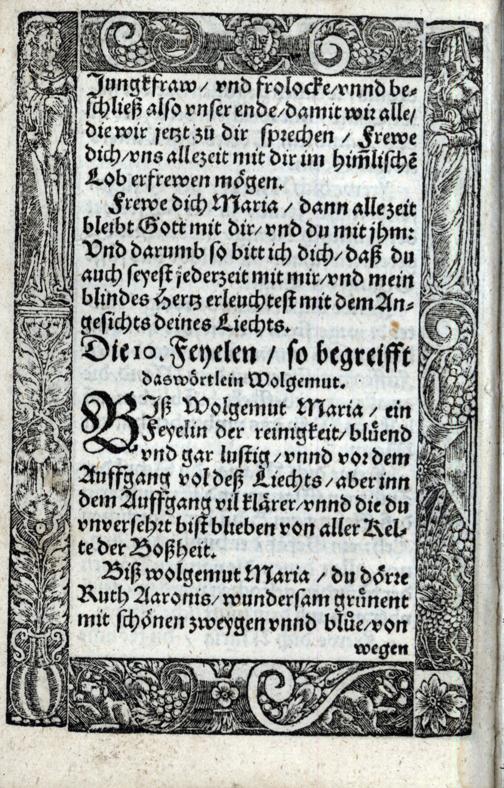 Jungkfraw / vnd frolocke / vnnd be⸗
schließ also vnser ende / damit wir alle /
die wir jetzt zu dir sprechen / Frewe
dich / vns allezeit mit dir im him̃lischẽ
Lob erfrewen mögen.
Frewe dich Maria / dann alle zeit
bleibt Gott mit dir / vnd du mit jhm:
Vnd darumb so bitt ich dich / daß du
auch seyest jederzeit mit mir / vnd mein
blindes Hertz erleuchtest mit dem An⸗
gesichts deines Liechts.
Die 10. Feyelen / so begreifft
das wörtlein Wolgemut.
BIß Wolgemut Maria / ein
Feyelin der reinigkeit / blüend
vnd gar lustig / vnnd vor dem
Auffgang vol deß Liechts / aber inn
dem Auffgang vil klärer / vnnd die du
vnversehrt bist blieben von aller Kel⸗
te der Boßheit.
Biß wolgemut Maria / du dörre
Ruth Aaronis / wundersam grünent
mit schönen zweygen vnnd blüe / von
wegen